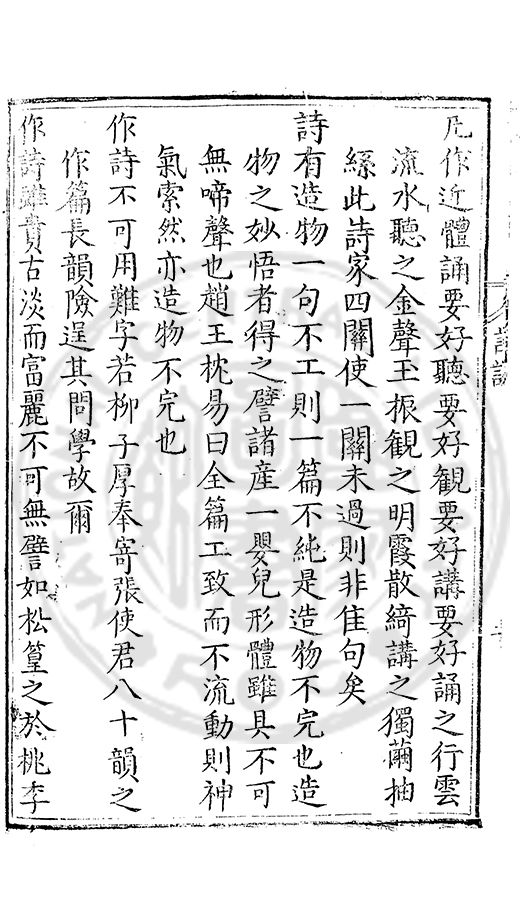 凡作近體誦要好聽要好觀要好講要好誦之行雲
流水聽之金聲玉振觀之明霞散綺講之獨繭抽
絲此詩家四關使一關未過則非佳句矣
詩有造物一句不工則一篇不純是造物不完也造
物之妙悟者得之譬諸產一嬰兒形體雖具不可
無啼聲也趙王枕易曰全篇工致而不流動則神
氣索然亦造物不完也
作詩不可用難字若柳子厚奉寄張使君八十韻之
作篇長韻險逞其問學故爾
作詩雖貴古淡而富麗不可無譬如松篁之於桃李